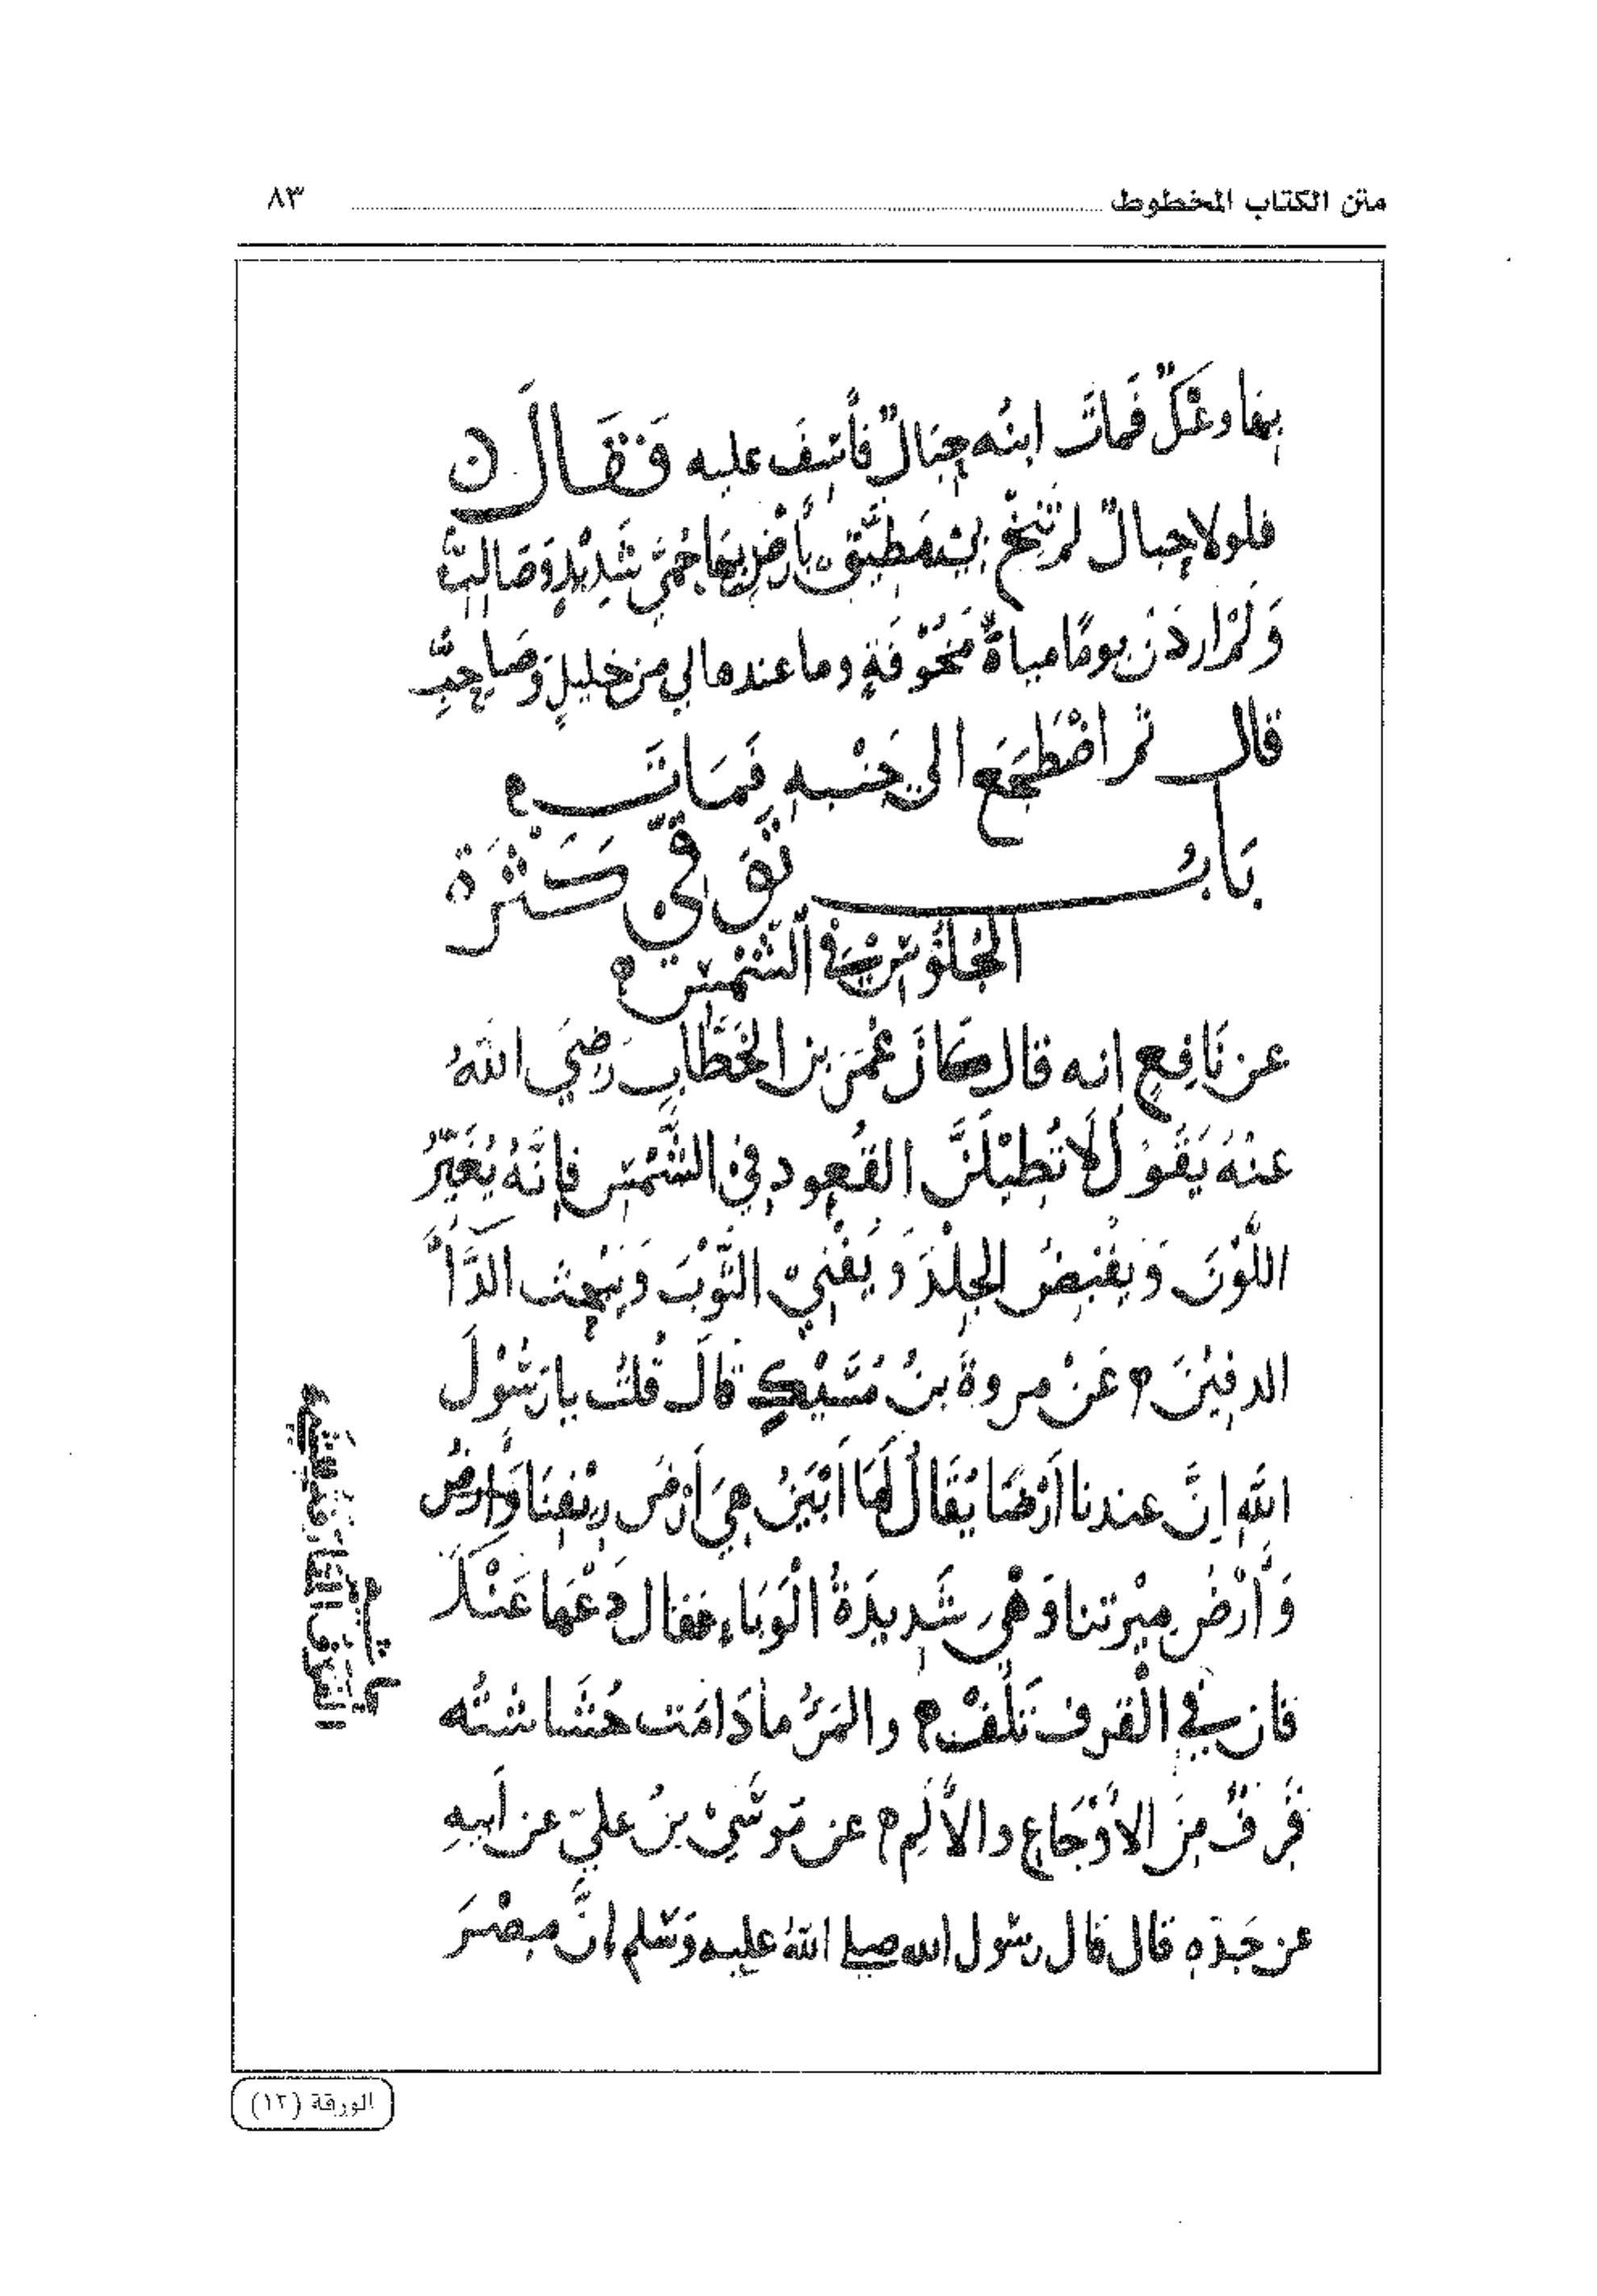 متن الكتاب المخطوط ٨٣
بها وعكٌ فماتَ ابنُه حِبَالٌ فأَسِفَ عليه فَقَالَ
فلولا حِبالٌ لم تُنِخْ بي مَطيَّتي بأَرْضٍ بِهَا حُمَّى شَدِيْدٍ وَصَالِبُ
وَلَمْ اردَنْ يومًا مياهً مَخُوْفَةٍ وما عندها لي من خليلٍ وَصَاحِبِ
قال ثم اضْطَجَعَ الي جَنْبِهِ فَمَاتَ
بَابُ تَوَقِّي كَثْرَة
الجُلُوْسِ في الشَّمْسِ
عن نَافِعٍ انه قال كانَ عُمَرَ بن الخَطَّابِ رَضِيَ اللهُ
عنْهُ يَقُوْلُ لَا تُطِيْلَنَّ القُعود في الشَّمْسِ فإنَّهُ يُغَيِّرُ
اللَّوْنَ وَيَقْبِضُ الجِلْدَ وَيُفْنِيْ الثَّوْبَ وَيَبْحَثُ الدَّآءَ
الدفِيْنَ عَنْ مروةَ بنُ مُسَيْكٍ قالَ قُلتُ يا رَسُوْلَ
اللهِ اِنَّ عندنا اَرْضًا يُقَالُ لَهَا اَبْيَنُ هِيَ اَرْضُ رِيْفِنَا وَارضُ
وَأرْضُ مِيْرتنا وَهْيَ شَدِيدَةُ الْوَبَاءِ فقال دَعْهَا عَنْكَ
فان في الْقَرف تَلَفْ والمَرْءُ ما دَامَت حُشَاشتُه
قَرفٌ مِنَ الاَوْجَاعِ والاَلَمِ عن مُوسَيْ بنُ عليّ عن اَبيهِ
عن جَدِّهِ قال قال رسُول الله صلي اللهُ عليه وَسَلم اِنَّ مِصْرَ
الورقة (١٢)